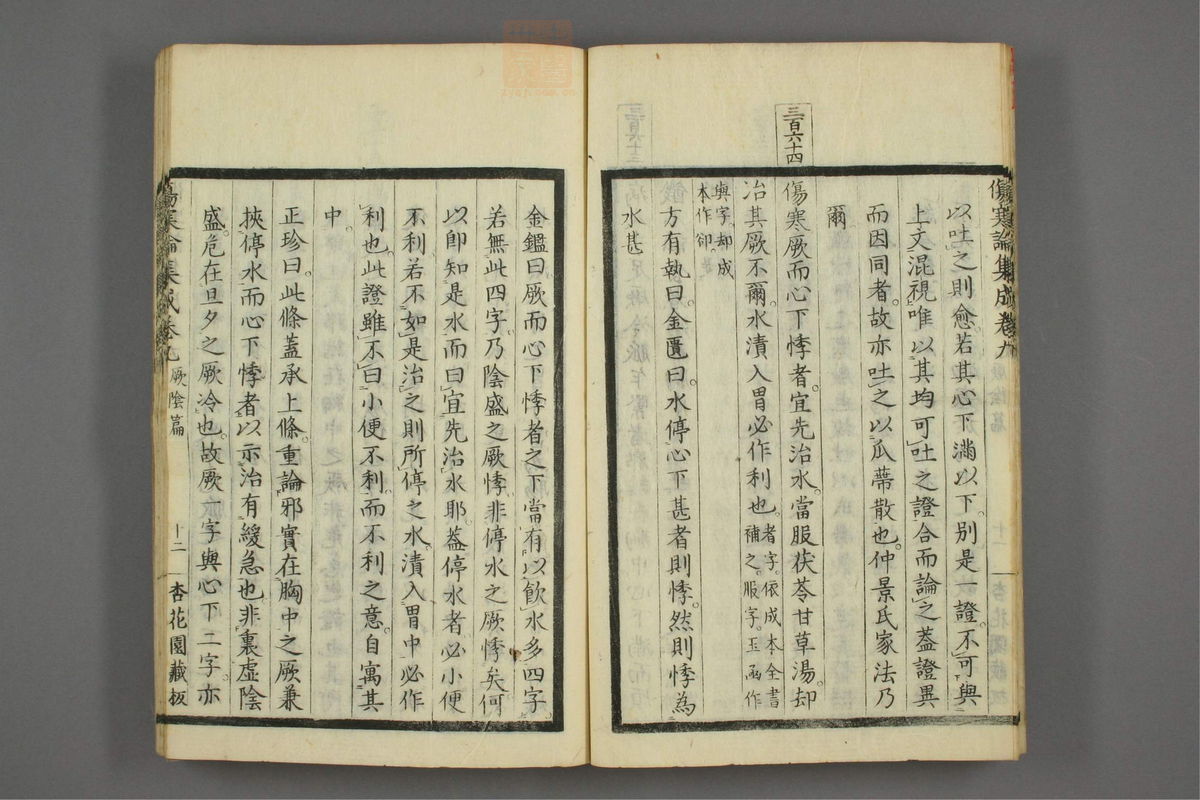 傷寒論集成卷九
以吐之則愈若其心下滿以下別是一證不可與
上文混視唯以其均可吐之證合而論之蓋證異
而因同者故亦吐之以瓜蔕散也仲景氏家法乃
爾
三百六十四
傷寒厥而心下悸者宜先治水當服茯苓甘草湯却
治其厥不爾水漬入胃必作利也者字依成本全書補之服字玉函作
與字却成本作卻
方有執曰金匱曰水停心下甚者則悸然則悸為
水甚
金鑑曰厥而心下悸者之下當有以飲水多四字
若無此四字乃陰盛之厥悸非停水之厥悸矣何
以卽知是水而曰宜先治水耶葢停水者必小便
不利若不如是治之則所停之水漬入胃中必作
利也此證雖不曰小便不利而不利之意自寓其
中
正珍曰此條蓋承上條重論邪實在胸中之厥兼
挾停水而心下悸者以示治有緩急也非裏虛陰
盛危在旦夕之厥冷也故厥一字與心下二字亦
傷寒論集成卷九 厥陰篇 十二 杏花園藏板